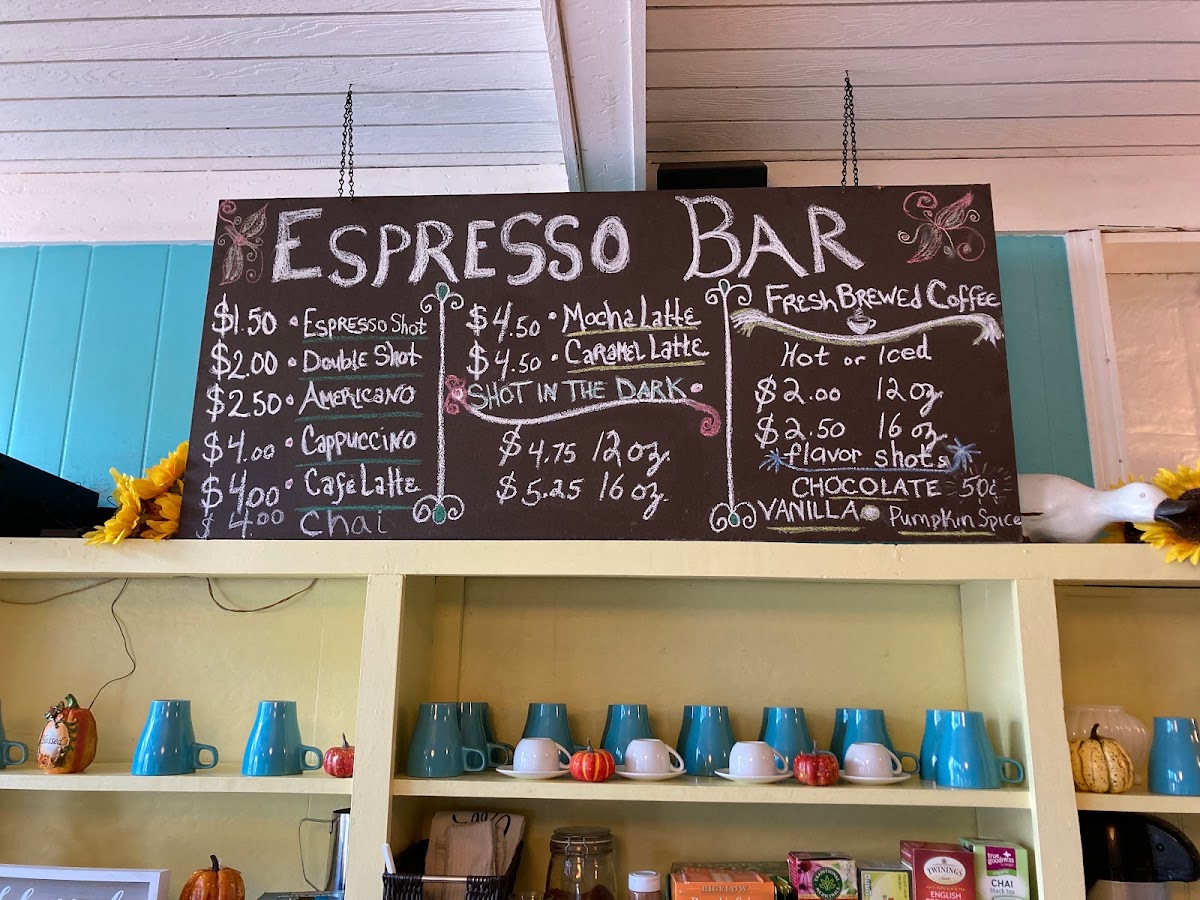 ESPRESSO BAR
$1.50 • ESPRESSO SHOT
$2.00 • DOUBLE SHOT
$2.50 • AMERICANO
$4.00 • CAPPUCCINO
$4.00 • CAFé LATTE
$4.00 Chai
$4.50 • Mocha Latte
$4.50 • CARAMEL LATTE
SHOT IN THE DARK
$4.75 12 oz.
$5.25 16 oz.
FRESH BREWED COFFEE
Hot or Iced
$2.00 12 oz
$2.50 16 oz.
flavor shots
CHOCOLATE 50¢
VANILLA Pumpkin Spice
Blessed
BIGELOW
Pumpkin Spice
TRADITIONAL
TWININGS
ENGLISH
true goodness
CHAI
black tea